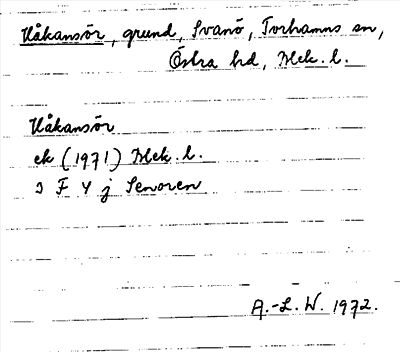 Håkansör, grund, Svanö, Torhamns sn,
Östra hd, Blek. l.
Håkansör
ek (1971) Blek. l.
3 F 4 j Senoren
A.-L. W. 1972.